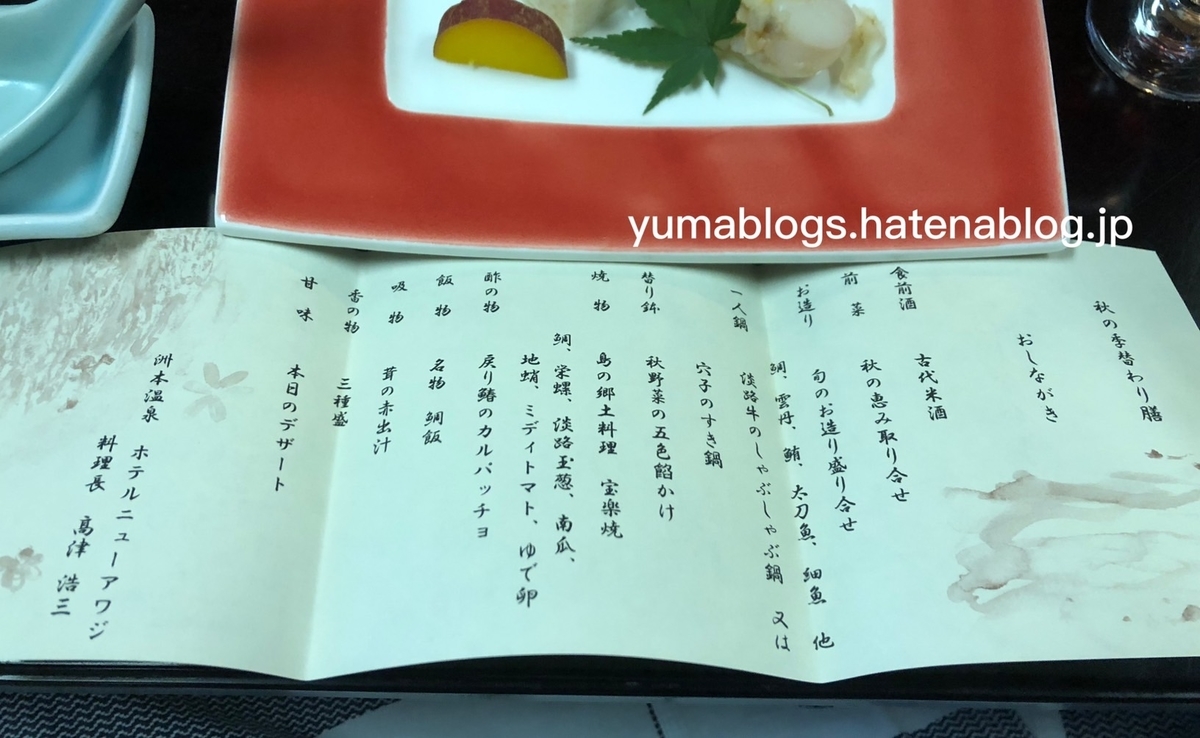 yumablogs.hatenablog.jp
秋の季替わり膳
おしながき
食前酒 古代米酒
前菜 秋の恵み取り合せ
お造り 旬のお造り盛り合せ
鯛、雲丹、鮪、太刀魚、細魚 他
一人鍋 淡路牛のしゃぶしゃぶ鍋 又は
穴子のすき鍋
替り鉢 秋野菜の五色餡かけ
焼物 島の郷土料理 宝楽焼
鯛、栄螺、淡路玉葱、南瓜、
地蛸、ミディトマト、ゆで卵
酢の物 戻り鰆のカルパッチョ
飯物 名物 鯛飯
吸物 茸の赤出汁
香の物 三種盛
甘味 本日のデザート
洲本温泉 ホテルニューアワジ
料理長 高津 浩三